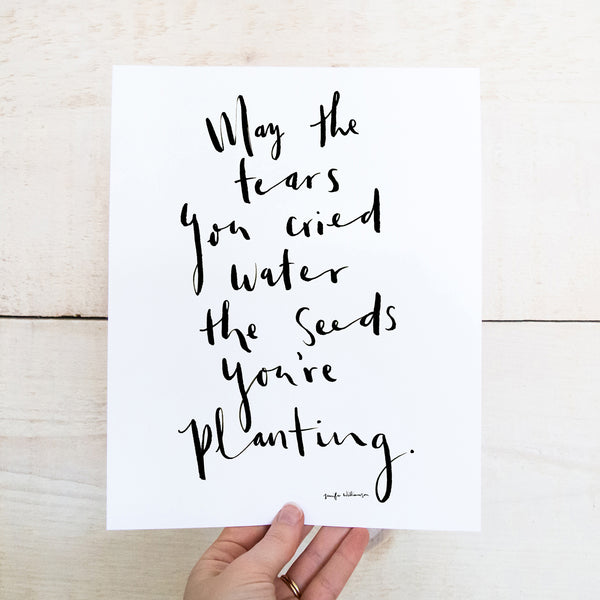 May the
tears
you cried
water
the seeds
you're
planting.